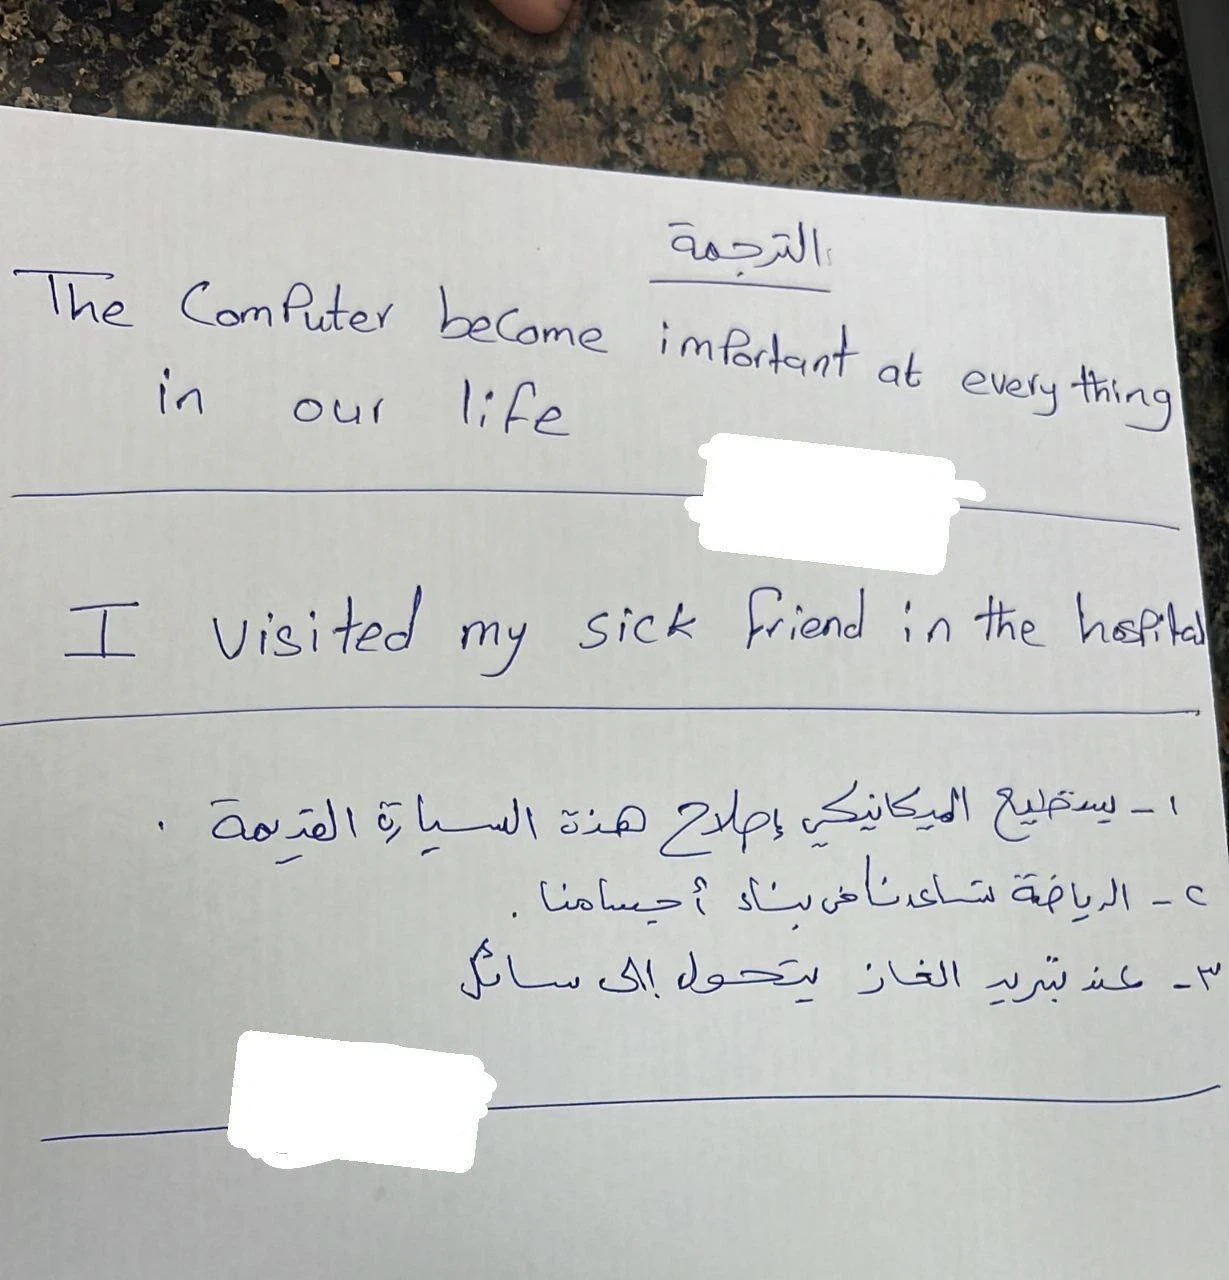 الترجمة
The Computer become important at every thing
in our life
I visited my sick friend in the hospital
١ - يستطيع الميكانيكي إصلاح هذة السيارة القديمة .
٢ - الرياضة تساعدنا في بناء أجسامنا .
٣ - عند تبريد الغاز يتحول إلى سائل